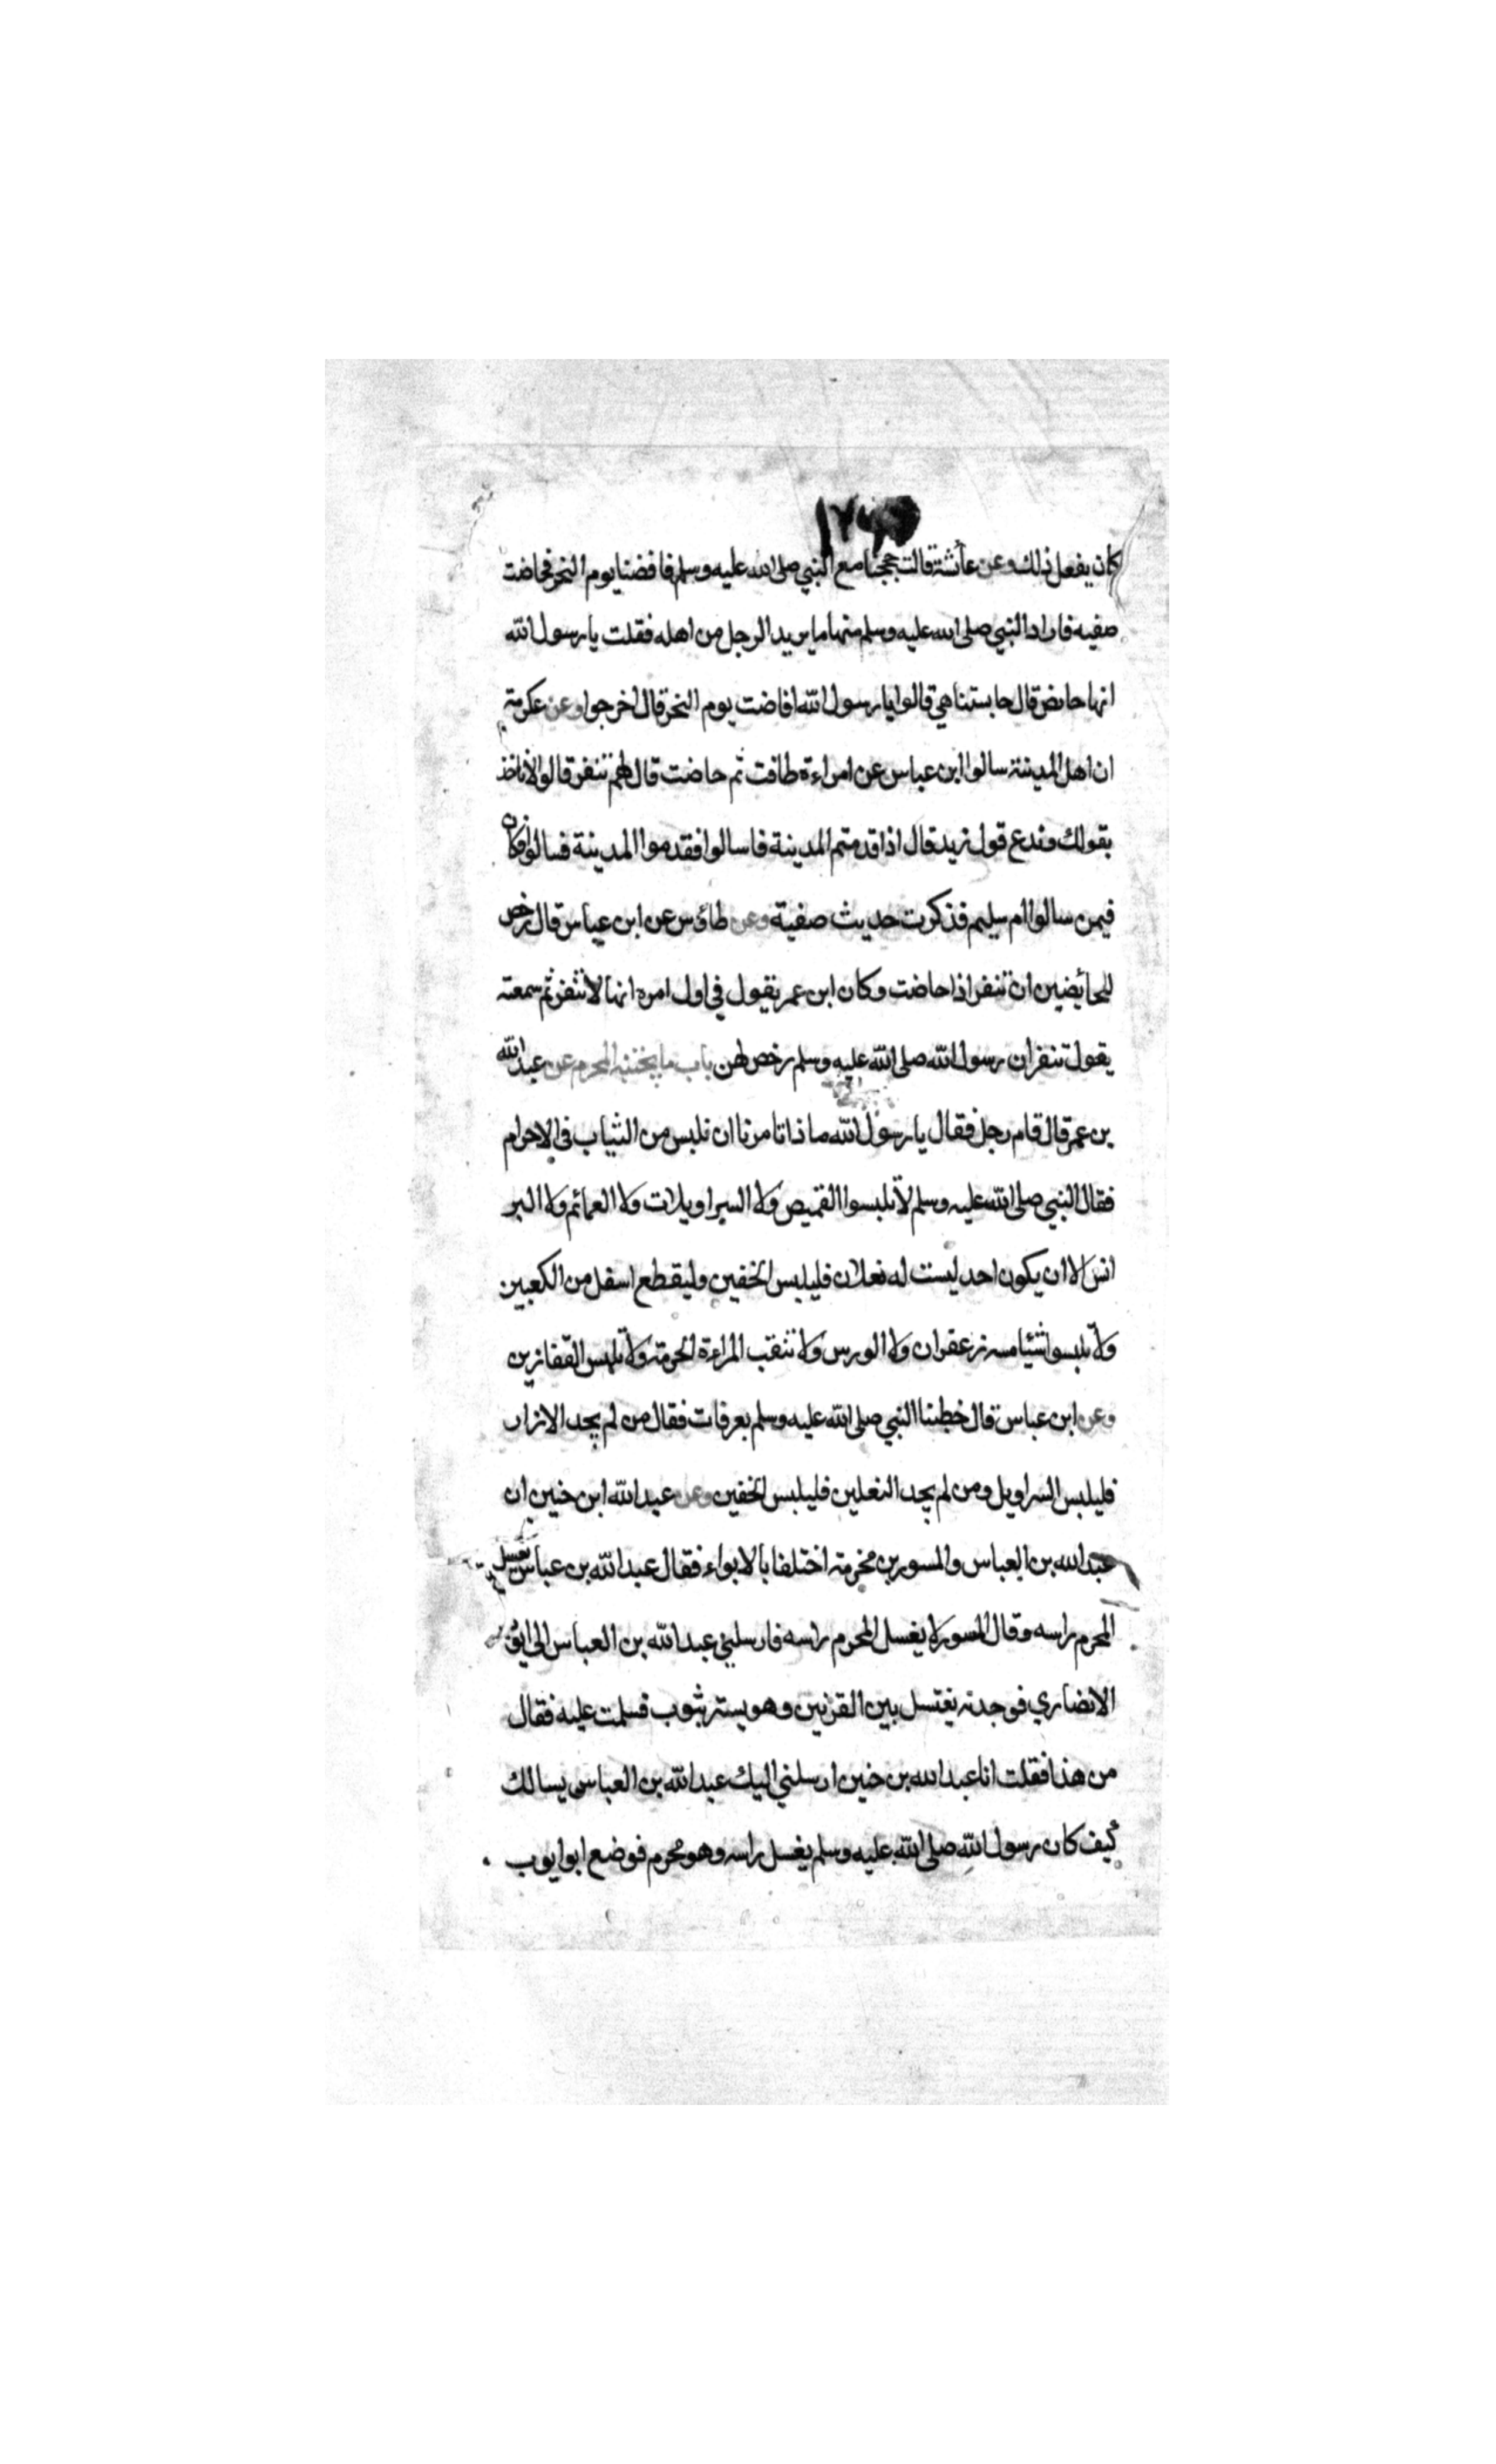 كان يفعل ذلك وعن عائشة قالت حججنا مع النبي صلى الله عليه وسلم فافضنا يوم النحر فحاضت
صفيه فاراد النبي صلى الله عليه وسلم منها ما يريد الرجل من اهله فقلت يا رسول الله
انها حائض قال حابستنا هي قالوا يا رسول الله افاضت يوم النحر قال اخرجوا وعن عكرمة
ان اهل المدينة سالوا ابن عباس عن امراءة طافت ثم حاضت قال لهم تنفر قالوا لا ناخذ
بقولك وندع قول زيد قال اذا قدمتم المدينة فاسالوا فقدموا المدينة فسالوا فكان
فيمن سالوا ام سليم فذكرت حديث صفية وعن طاؤس عن ابن عباس قال رخص
للحائضين ان تنفر اذا حاضت وكان ابن عمر يقول في اول امره انها لا تنفر ثم سمعته
يقول تنفر ان رسول الله صلى الله عليه وسلم رخص لهن باب ما يجتنبه المحرم عن عبد الله
بن عمر قال قام رجل فقال يا رسول الله ماذا تامرنا ان نلبس من الثياب في الاحرام
فقال النبي صلى الله عليه وسلم لا تلبسوا القميص ولا السراويلات ولا العمائم ولا البر
انس الا ان يكون احد ليست له نعلان فليلبس الخفين وليقطع اسفل من الكعبين
ولا تلبسوا شيئا مسه زعفران ولا الورس ولا تنتقب المراءة المحرمة ولا تلبس القفازين
وعن ابن عباس قال خطبنا النبي صلى الله عليه وسلم بعرفات فقال من لم يجد الازار
فليلبس السراويل ومن لم يجد النعلين فليلبس الخفين وعن عبد الله ابن حنين ان
عبد الله بن العباس والمسور بن مخرمة اختلفا بالابواء فقال عبد الله بن عباس يغسل
المحرم راسه وقال المسور لا يغسل المحرم راسه فارسلني عبد الله بن العباس الى ابي
الانصاري فوجدته يغتسل بين القرنين وهو يستر بثوب فسلمت عليه فقال
من هذا فقلت انا عبد الله بن حنين ارسلني اليك عبد الله بن العباس يسالك
كيف كان رسول الله صلى الله عليه وسلم يغسل راسه وهو محرم فوضع ابو ايوب